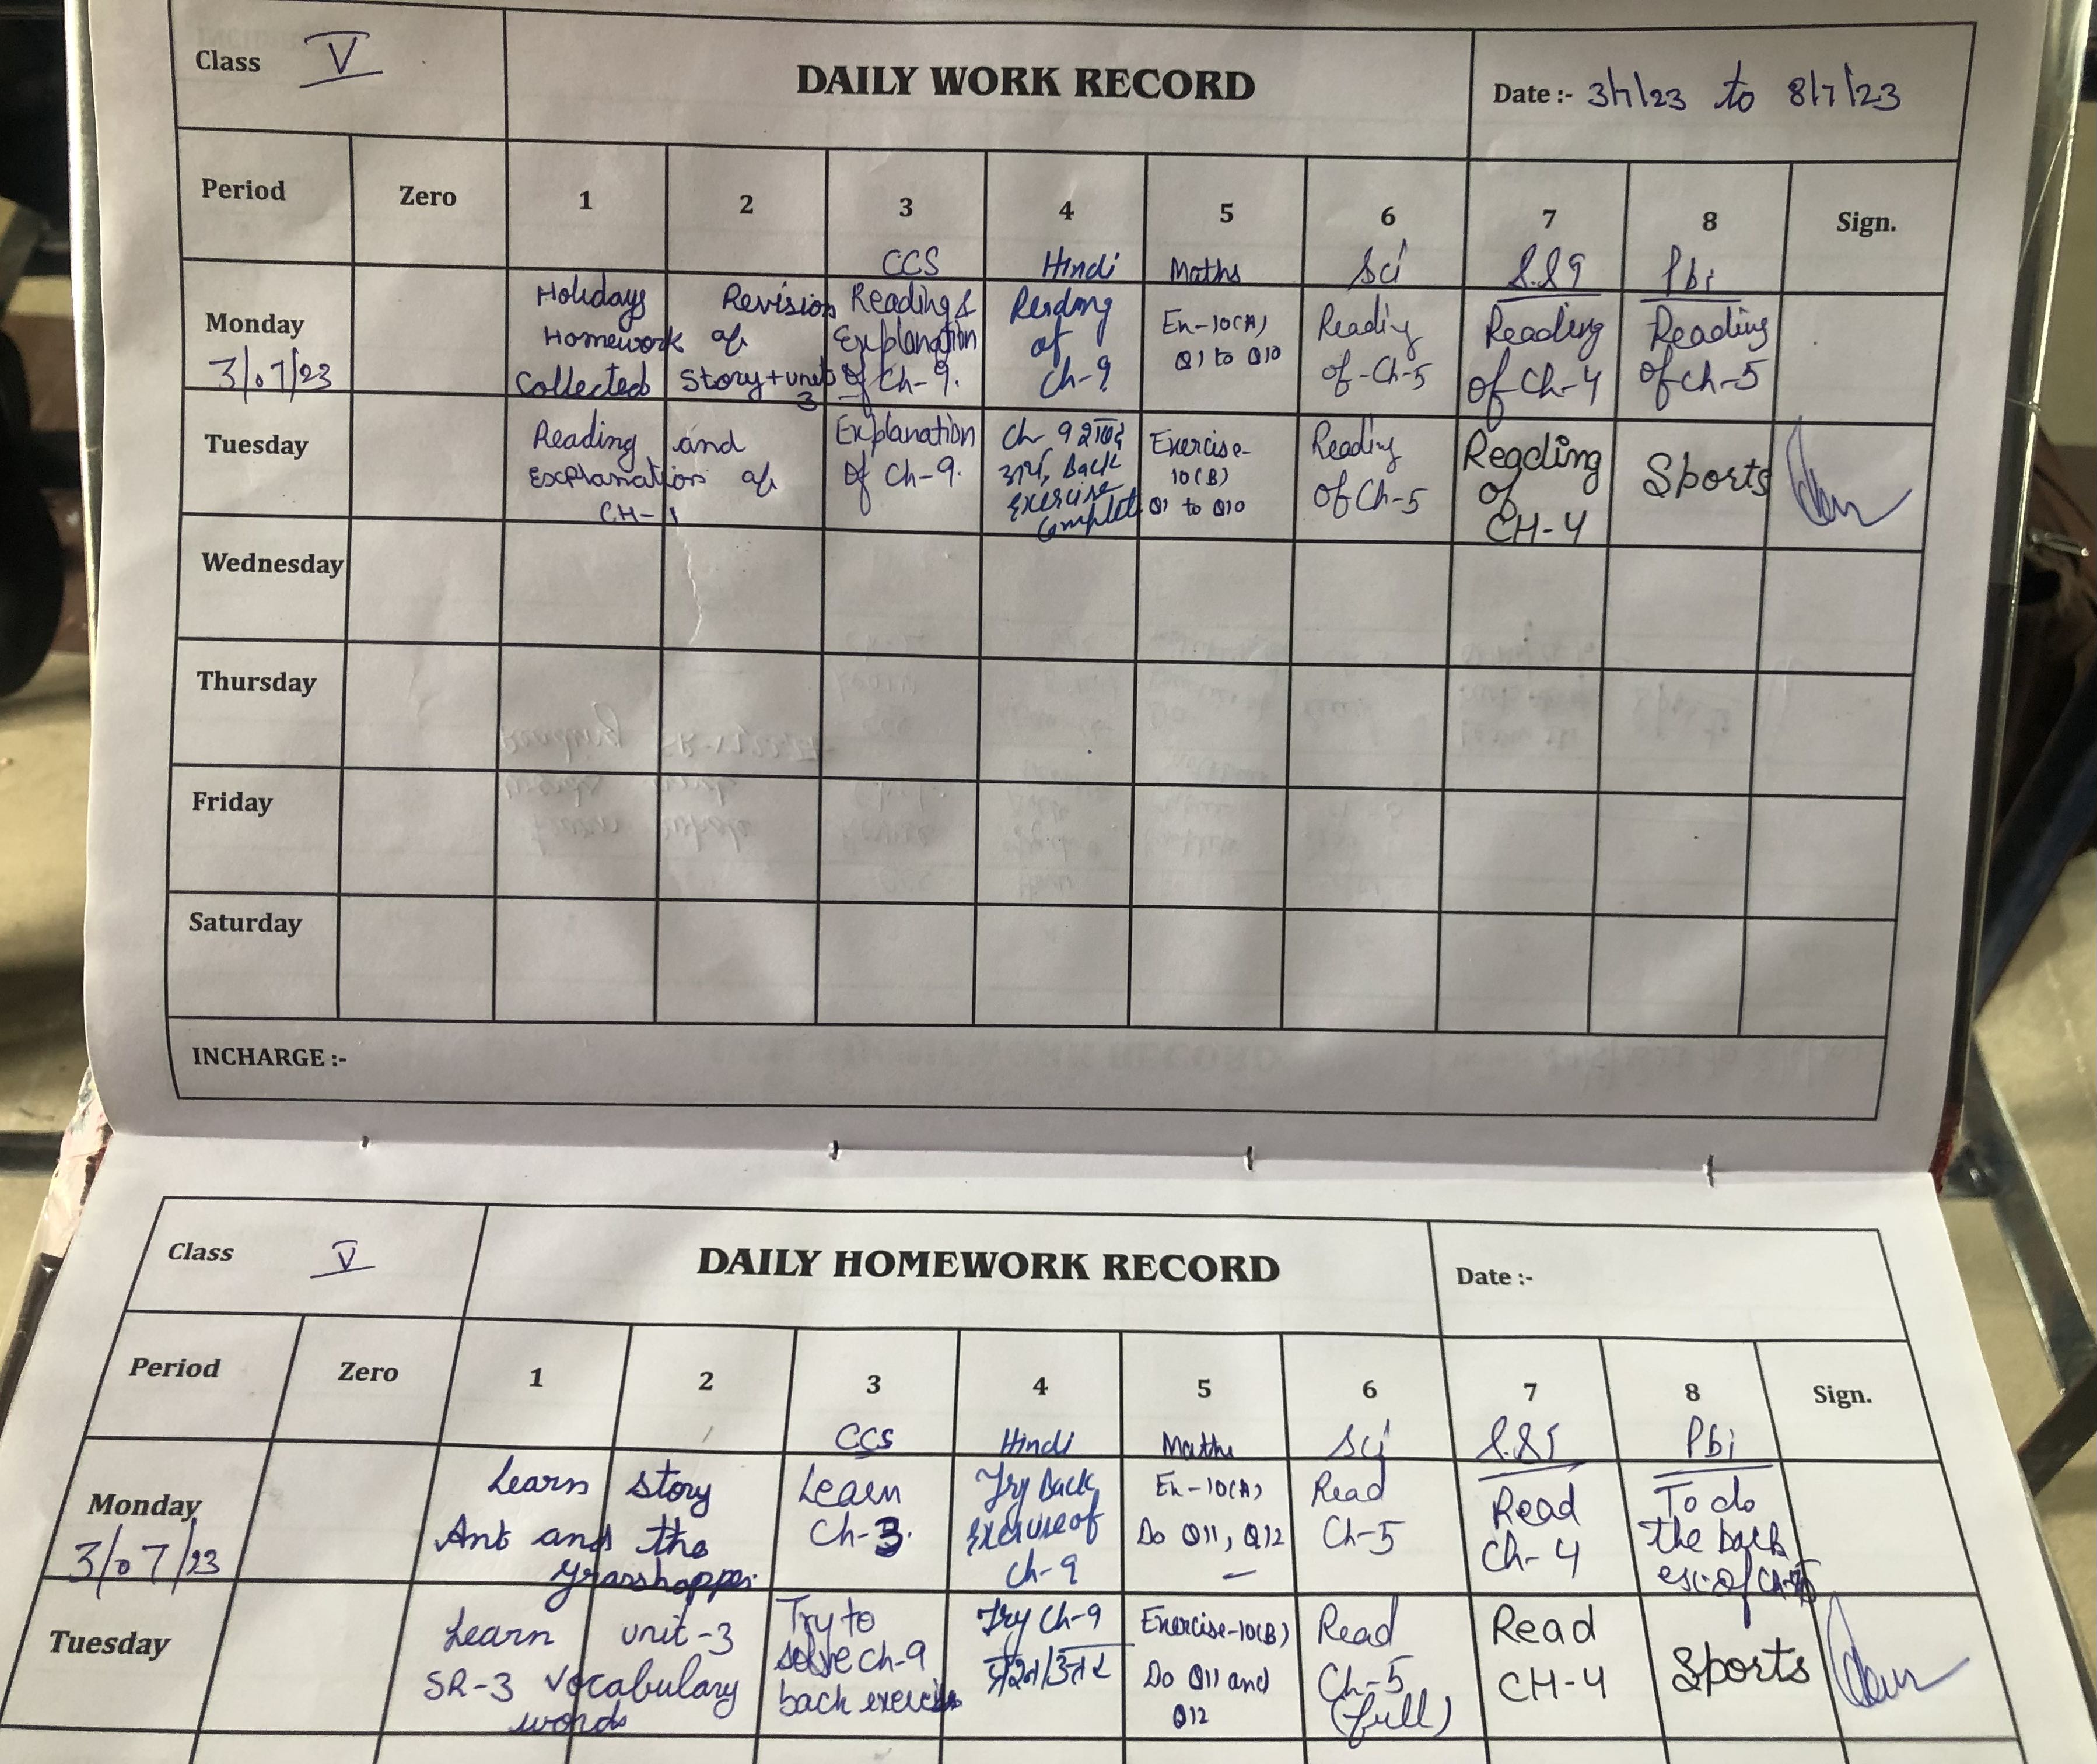 Class V
DAILY WORK RECORD
Date :- 3/7/23 to 8/7/23
Period Zero 1 2 3 4 5 6 7 8 Sign.
CCS Hindi Maths Sci S.S Pbi
Monday
3/07/23
Holidays
Homework
Collected
Revision
of
Story + unit
3
Reading &
Explanation
of Ch-9.
Reading
of
Ch-9
Ex-10(A)
Q1 to Q10
Reading
of-Ch-5
Reading
of Ch-4
Reading
of ch-5
Tuesday
Reading and
Explanation of
CH-1
Explanation
of Ch-9.
Ch-9 शब्द
अर्थ, Back
exercise
Complete
Exercise-
10(B)
Q1 to Q10
Reading
of Ch-5
Reading
of
CH-4
Sports
Wednesday
Thursday
Friday
Saturday
INCHARGE :-
Class V
DAILY HOMEWORK RECORD
Date :-
Period Zero 1 2 3 4 5 6 7 8 Sign.
CCS Hindi Maths Sci S.St Pbi
Monday
3/07/23
Learn story
Ant and the
Grasshopper.
Learn
Ch-3.
Try Back
Exercise of
Ch-9
Ex-10(A)
Do Q11, Q12
Read
Ch-5
Read
Ch-4
To do
the back
ex. of Ch-5
Tuesday
Learn unit-3
SR-3 Vocabulary
words
Try to
solve ch-9
back exercise
Try Ch-9
प्रश्न/उत्तर
Exercise-10(B)
Do Q11 and
Q12
Read
Ch-5
(full)
Read
CH-4
Sports